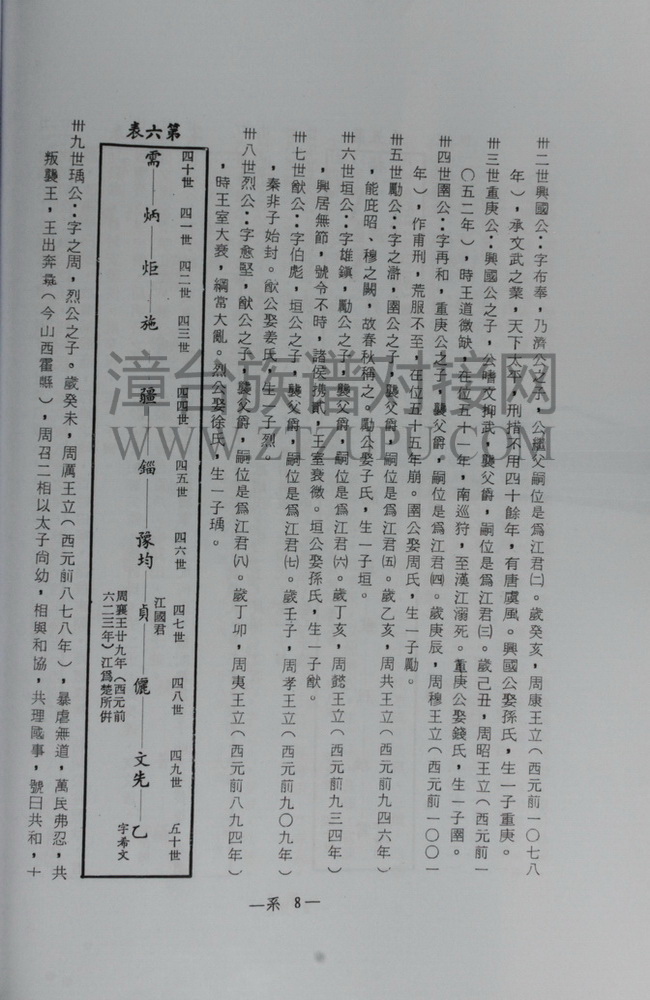 卅二世興國公：字布奉，乃濟公之子，公襲父嗣位是爲江君㈡。歲癸亥，周康王立（西元前一〇七八
年），承文武之業，天下太平，刑措不用四十餘年，有唐虞風。興國公娶孫氏，生一子重庚。
卅三世重庚公：興國公之子，公嗜文抑武，襲父爵，嗣位是爲江君㈢。歲己丑，周昭王立（西元前一
〇五二年），時王道微缺，在位五十一年，南巡狩，至漢江溺死。重庚公娶錢氏，生一子圉。
卅四世圉公：字再和，重庚公之子，襲父爵。嗣位是爲江君㈣。歲庚辰，周穆王立（西元前一〇〇一
年），作甫刑，荒服不至，在位五十五年崩。圉公娶周氏，生一子勵。
卅五世勵公：字之滸，圉公之子，襲父爵，嗣位是爲江君㈤。歲乙亥，周共王立（西元前九四六年）
，能庇昭、穆之闕，故春秋稱之，勵公娶子氏，生一子垣。
卅六世垣公：字雄鎮，勵公之子，襲父爵，嗣位是爲江君㈥。歲丁亥，周懿王立（西元前九三四年）
，興居無節，號令不時，諸侯携貳，王室衰微。垣公娶孫氏，生一子猷。
卅七世猷公：字伯彪，垣公之子，襲父爵，嗣位是爲江君㈦。歲壬子，周孝王立（西元前九〇九年）
，秦非子始封。猷公娶姜氏，生一子烈。
卅八世烈公：字愈堅，猷公之子，襲父爵，嗣位是爲江君㈧。歲丁卯，周夷王立（西元前八九四年）
，時王室大衰，綱常大亂。烈公娶徐氏，生一子瑀。
第六表
四十世 四一世 四二世 四三世 四四世 四五世 四六世 四七世 四八世 四九世 五十世
江國君
需—炳—炬—施—疆—錙—豫均—貞—儷—文先—乙
周襄王廿九年（西元前
六二三年）江爲楚所併
字希文
卅九世瑀公：字之周，烈公之子。歲癸未，周厲王立（西元前八七八年），暴虐無道，萬民弗忍，共
叛襲王，王出奔彘（今山西霍縣），周召二相以太子尙幼，相與和協，共理國事，號曰共和，十
—系 8—
漳台族谱对接网
WWW.ZTZUPU.COM